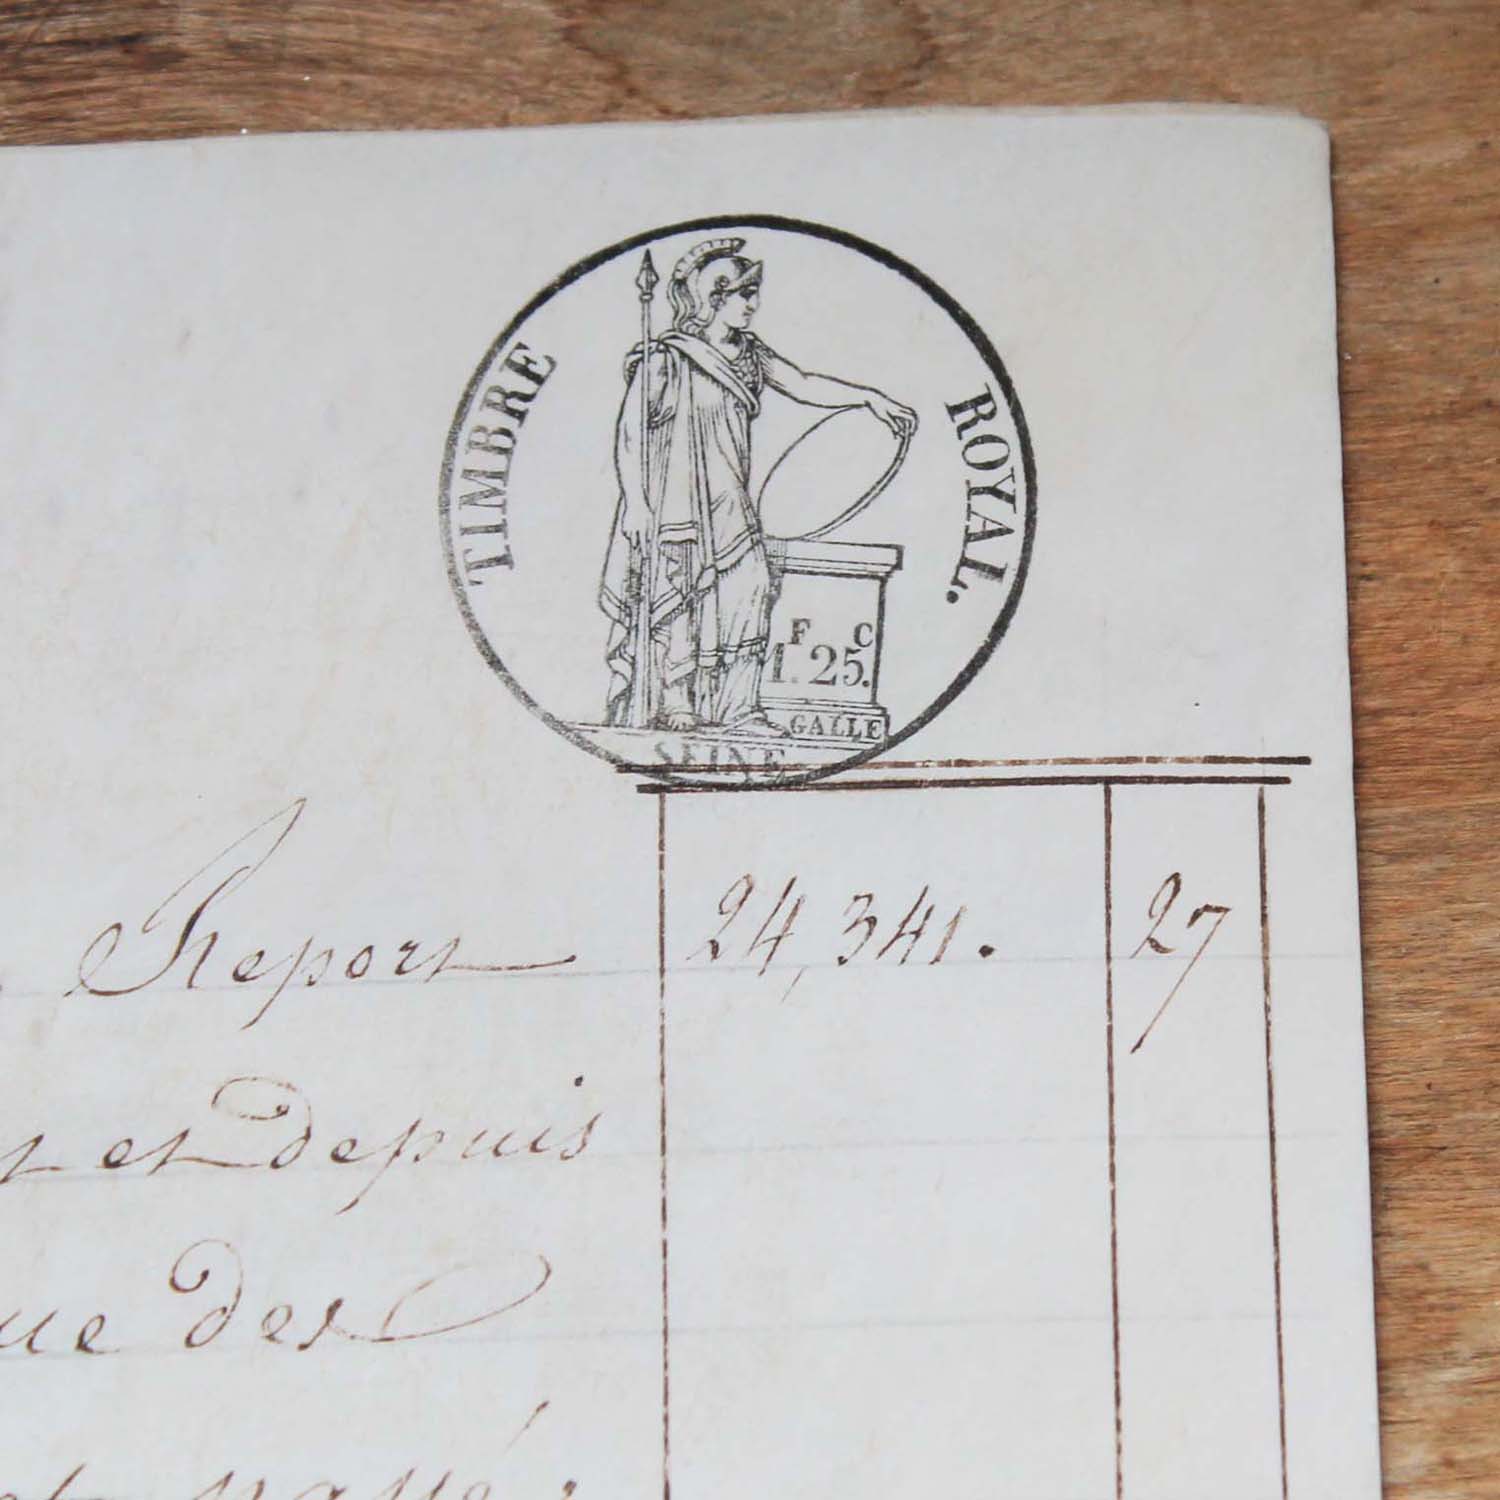 TIMBRE ROYAL.
F C
1.25.
GALLE
SEINE
Report 24,341. 27
et depuis
des
passé :